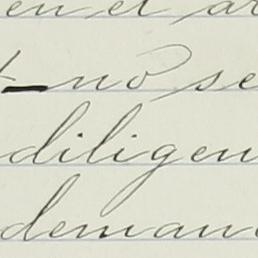 en el ar
no se
diligen
deman